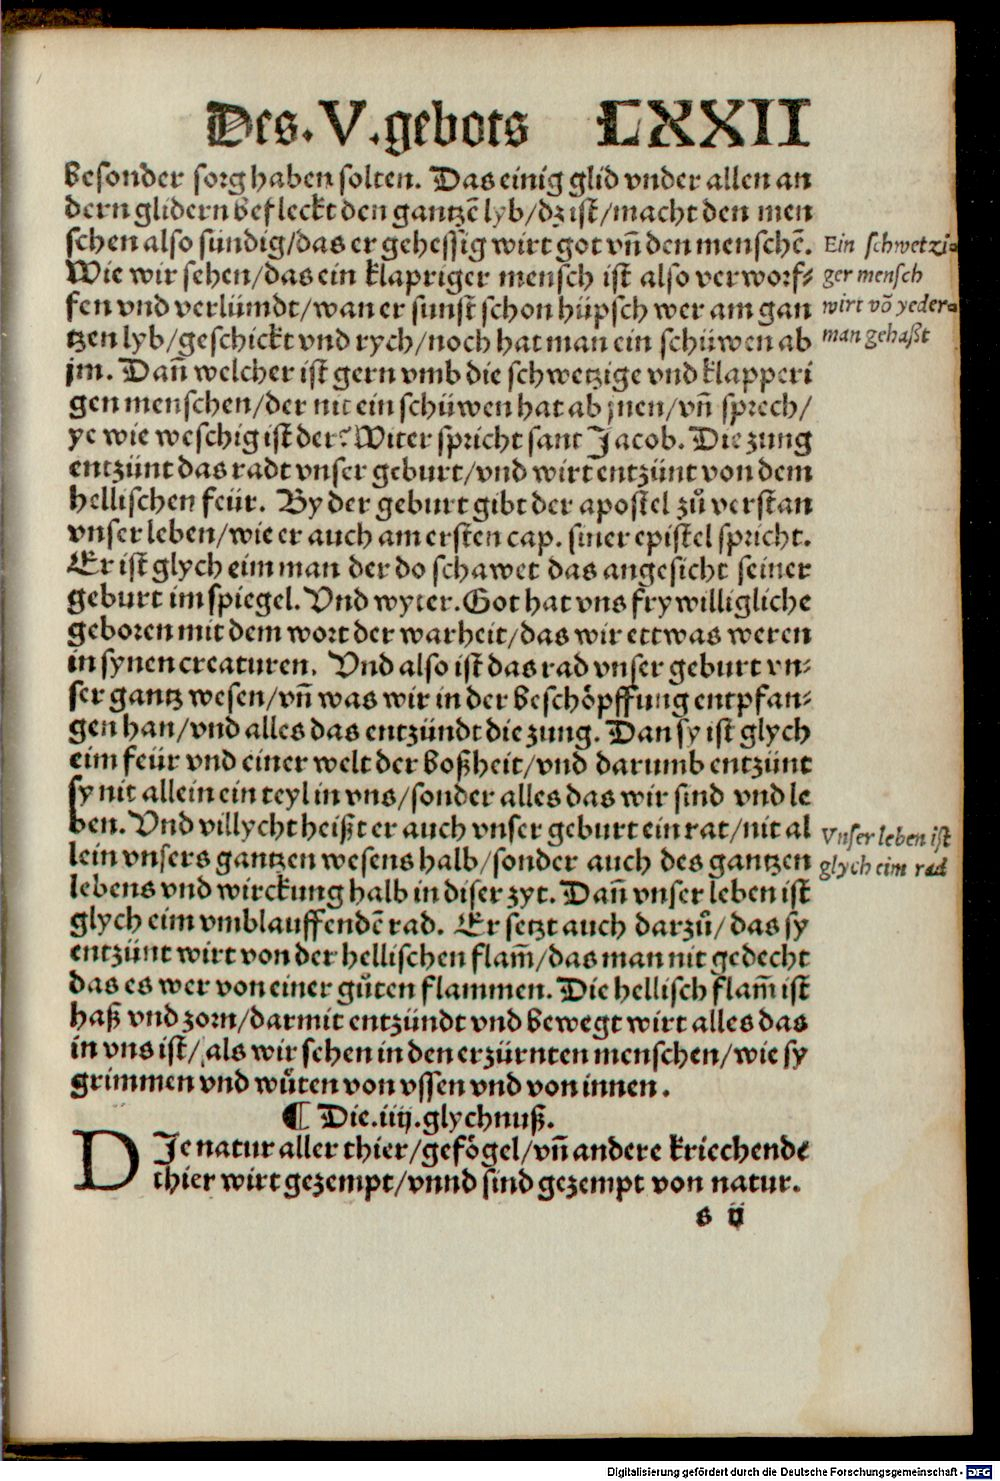 Des. V. gebots LXXII
besonder sorg haben solten. Das einig glid vnder allen an
dern glidern befleckt den gantzē lyb/dz ist/macht den men
schen also sündig/das er gehessig wirt got vn̄ den menschē.
Wie wir sehen/das ein klapriger mensch ist also verworf-
fen vnd verlümdt/wan er sunst schon hüpsch wer am gan
tzen lyb/geschickt vnd rych/noch hat man ein schüwen ab
jm. Dan̄ welcher ist gern vmb die schwetzige vnd klapperi
gen menschen/der nit ein schüwen hat ab jnen/vn̄ sprech/
ye wie weschig ist der? Witer spricht sant Jacob. Die zung
entzünt das radt vnser geburt/vnd wirt entzünt von dem
hellischen feür. By der geburt gibt der apostel zů verstan
vnser leben/wie er auch am ersten cap. siner epistel spricht.
Er ist glych eim man der do schawet das angesicht seiner
geburt im spiegel. Vnd wyter. Got hat vns frywilligliche
geboren mit dem wort der warheit/das wir ettwas weren
in synen creaturen. Vnd also ist das rad vnser geburt vn-
ser gantz wesen/vn̄ was wir in der beschöpffung entpfan-
gen han/vnd alles das entzündt die zung. Dan sy ist glych
eim feür vnd einer welt der boßheit/vnd darumb entzünt
sy nit allein ein teyl in vns/sonder alles das wir sind vnd le
ben. Vnd villycht heißt er auch vnser geburt ein rat/nit al
lein vnsers gantzen wesens halb/sonder auch des gantzen
lebens vnd wirckung halb in diser zyt. Dan̄ vnser leben ist
glych eim vmblauffendē rad. Er setzt auch darzů/das sy
entzünt wirt von der hellischen flam̄/das man nit gedecht
das es wer von einer gůten flammen. Die hellisch flam̄ ist
haß vnd zorn/darmit entzündt vnd bewegt wirt alles das
in vns ist/als wir sehen in den erzürnten menschen/wie sy
grimmen vnd wůten von vssen vnd von innen.
¶ Die.iiij.glychnuß.
DJe natur aller thier/gefögel/vn̄ andere kriechende
thier wirt gezempt/vnnd sind gezempt von natur.
s ij
Ein schwetzi-
ger mensch
wirt vō yeder-
man gehaßt
Vnser leben ist
glych eim rad
Digitalisierung gefördert durch die Deutsche Forschungsgemeinschaft - DFG